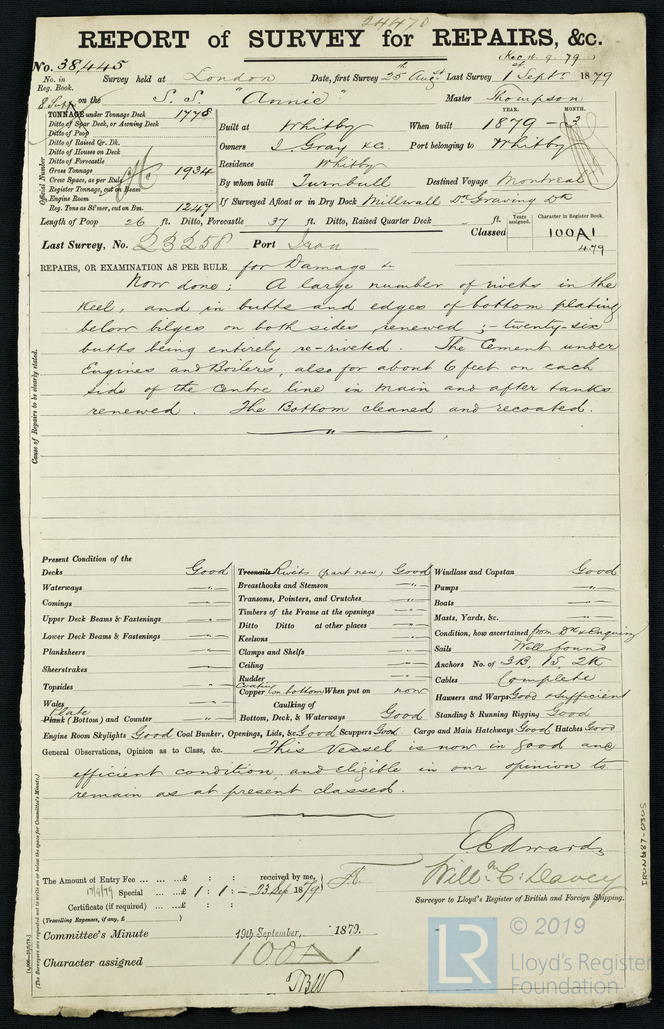 24470
REPORT of SURVEY for REPAIRS, &c.
No. 38,445
No. in Reg. Book.
Survey held at London Date, first Survey 25th Augst Last Survey 1st Septr 1879
on the S.S. "Annie" Master Thompson
TONNAGE under Tonnage Deck 1778
Ditto of Spar Deck, or Awning Deck
Ditto of Poop
Ditto of Raised Qr. Dk.
Ditto of Houses on Deck
Ditto of Forecastle
Gross Tonnage 1934
Crew Space, as per Rule
Register Tonnage, cut on Beam
Engine Room
Reg. Tons as St'mer, cut on Bm. 1247
Official Number
YEAR. MONTH.
Built at Whitby When built 1879 - 3
Owners I Gray &c. Port belonging to Whitby
Residence Whitby
By whom built Turnbull Destined Voyage Montreal
If Surveyed Afloat or in Dry Dock Millwall Dk Graving Dk
Length of Poop 26 ft. Ditto, Forecastle 37 ft. Ditto, Raised Quarter Deck ft.
Years assigned. Character in Register Book.
Classed 100A1
4.79
Last Survey, No. 23258 Port Iron
REPAIRS, OR EXAMINATION AS PER RULE, for Damage &c
Now done; A large number of rivets in the
Keel, and in butts and edges of bottom plating
below bilges on both sides renewed ;- twenty-six
butts being entirely re-riveted. The Cement under
Engines and Boilers, also for about 6 feet on each
side of the centre line in main and after tanks
renewed. The Bottom cleaned and recoated.
Cause of Repairs to be clearly stated.
Present Condition of the
Decks Good
Waterways "
Comings "
Upper Deck Beams & Fastenings "
Lower Deck Beams & Fastenings "
Planksheers "
Sheerstrakes "
Topsides "
Wales "
Plate
Plank (Bottom) and Counter "
Treenails Rivets (part new) Good
Breasthooks and Stemson "
Transoms, Pointers, and Crutches "
Timbers of the Frame at the openings "
Ditto Ditto at other places "
Keelsons "
Clamps and Shelfs "
Ceiling "
Rudder "
Coating
Copper on bottom When put on now
Caulking of
Bottom, Deck, & Waterways Good
Windlass and Capstan Good
Pumps "
Boats "
Masts, Yards, &c. "
Condition, how ascertained from Dk & Enquiry
Sails Well found
Anchors No. of 3B, 1S, 2K
Cables Complete
Hawsers and Warps Good & sufficient
Standing & Running Rigging Good
Engine Room Skylights Good Coal Bunker, Openings, Lids, &c. Good Scuppers Good Cargo and Main Hatchways Good Hatches Good
General Observations, Opinion as to Class, &c. This Vessel is now in good and
efficient condition, and eligible in our opinion to
remain as at present classed.
The Amount of Entry Fee ... £ : : received by me,
17/9/79 Special ... £ 1 : 1 : - 23 Sep 1879
Certificate (if required) ... £ : :
(Travelling Expenses, if any, £ )
Will: C: Davey
Surveyor to Lloyd's Register of British and Foreign Shipping.
Committee's Minute 19th September, 1879.
Character assigned 100A1
TBW
(The Surveyors are requested not to write on or below the space for Committee's Minute.)
IRON687-0305
LR
© 2019
Lloyd's Register
Foundation